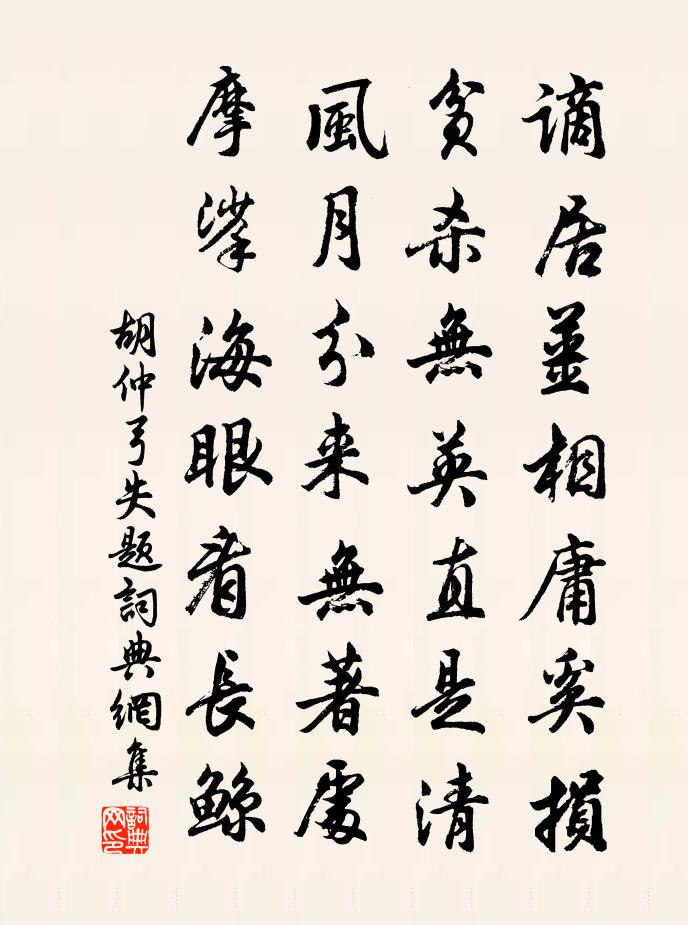 謫居薑相庸奚損
貧殺無英直是清
風月分来無著處
摩挲海眼看長鲸
胡仲弓失题詞典網集
詞典網印